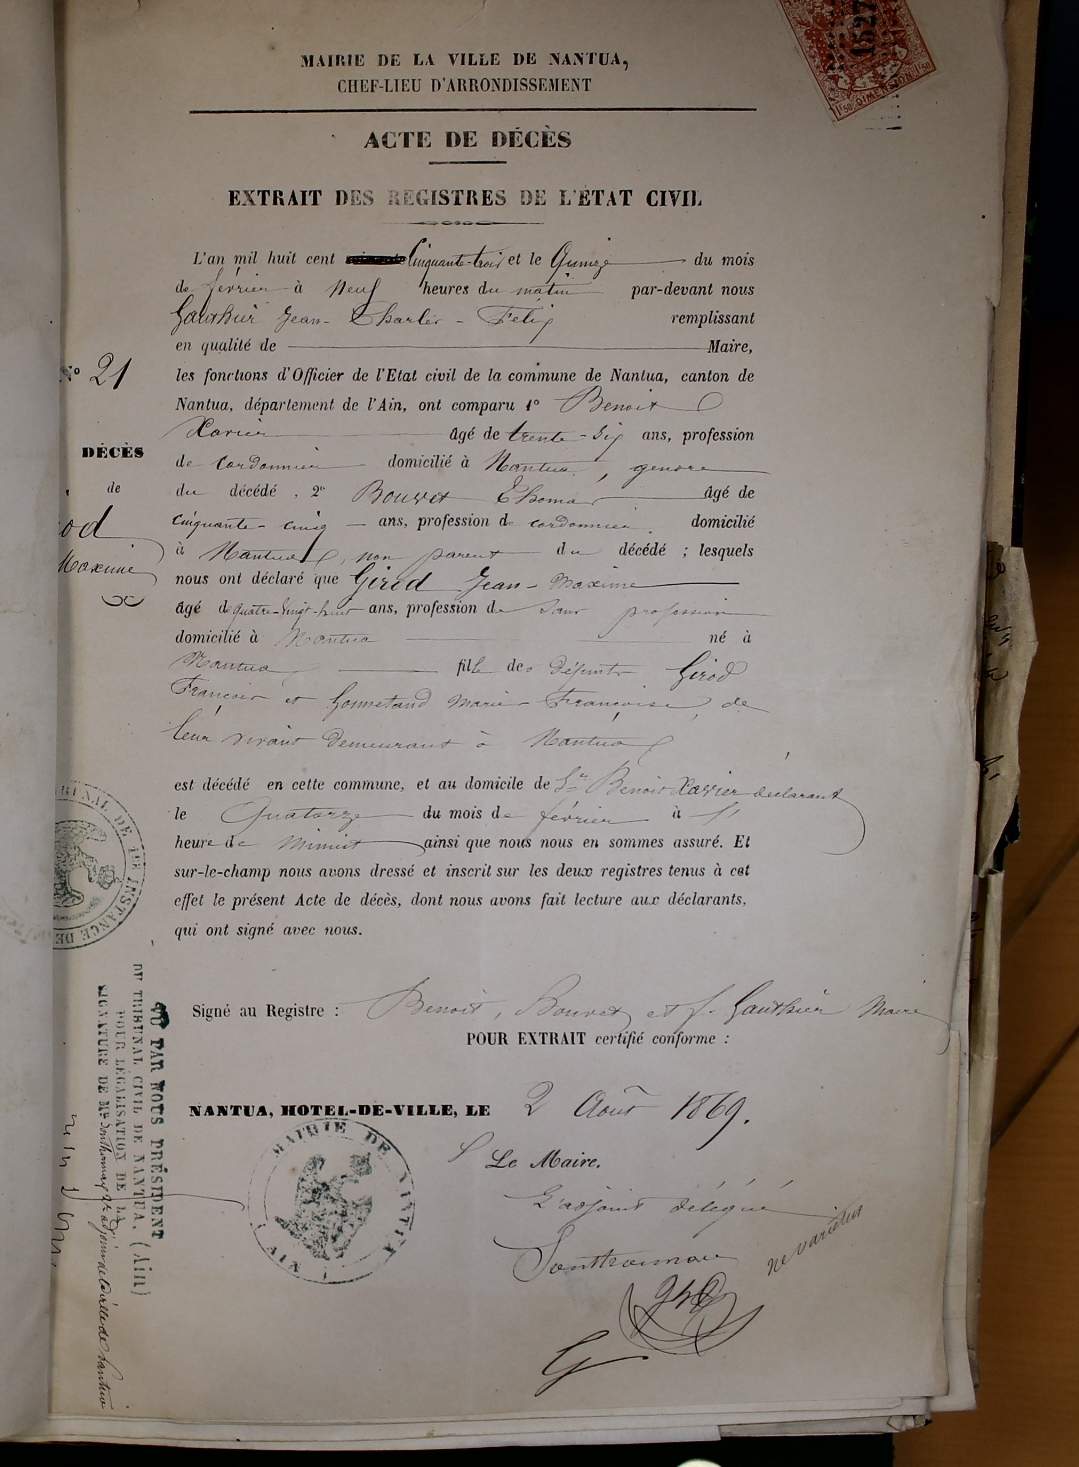 MAIRIE DE LA VILLE DE NANTUA,
CHEF-LIEU D'ARRONDISSEMENT
ACTE DE DÉCÈS
EXTRAIT DES REGISTRES DE L'ÉTAT CIVIL
L'an mil huit cent Cinquante-trois et le Quinze du mois
de février à Neuf heures du matin par-devant nous
Gauthier Jean-Charles-Félix remplissant
en qualité de Maire,
les fonctions d'Officier de l'Etat civil de la commune de Nantua, canton de
Nantua, département de l'Ain, ont comparu 1° Benoit
Xavier âgé de trente-six ans, profession
de cordonnier domicilié à Nantua, gendre
du décédé, 2° Bouvet Thomas âgé de
cinquante-cinq ans, profession de cordonnier domicilié
à Nantua, non parent du décédé ; lesquels
nous ont déclaré que Girod Jean-Maxime
âgé de quatre-vingt-huit ans, profession de sans profession
domicilié à Nantua né à
Nantua fils de défunts Girod
François et Gonnetand Marie-Françoise, de
leur vivant demeurant à Nantua
est décédé en cette commune, et au domicile de Sr Benoit Xavier déclarant
le Quatorze du mois de février à l'
heure de Minuit ainsi que nous nous en sommes assuré. Et
sur-le-champ nous avons dressé et inscrit sur les deux registres tenus à cet
effet le présent Acte de décès, dont nous avons fait lecture aux déclarants,
qui ont signé avec nous.
Signé au Registre : Benoit, Bouvet et f. Gauthier Maire
POUR EXTRAIT certifié conforme :
NANTUA, HOTEL-DE-VILLE, LE 2 Août 1869.
Le Maire.
L'adjoint délégué
ne varietur
N° 21
DÉCÈS
de
Maxime
TRIBUNAL DE 1RE INSTANCE DE
VU PAR NOUS PRÉSIDENT
DU TRIBUNAL CIVIL DE NANTUA, (Ain)
POUR LÉGALISATION DE LA
SIGNATURE DE Mr
MAIRIE DE NANTUA
AIN
1f50 DIMENSION 1f50
1527